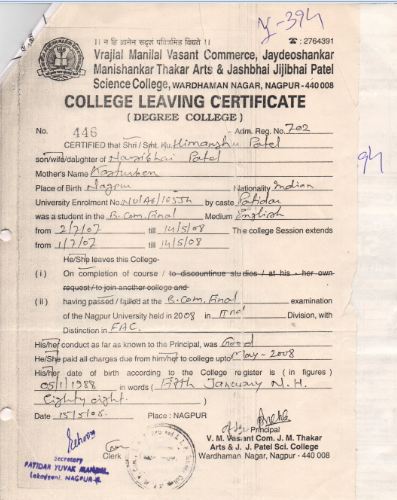 y-394
॥ न हि ज्ञानेन सदृशं पवित्रमिह विद्यते ॥ ☎ : 2764391
Vrajlal Manilal Vasant Commerce, Jaydeoshankar
Manishankar Thakar Arts & Jashbhai Jijibhai Patel
Science College, WARDHAMAN NAGAR, NAGPUR - 440 008
COLLEGE LEAVING CERTIFICATE
( DEGREE COLLEGE )
No. 446 Adm. Reg. No. 702
CERTIFIED that Shri / Smt. Ku. Himanshu Patel
son/wife/daughter of Patel
Mother's Name
Place of Birth Nagpur Nationality Indian
University Enrolment No. by caste Patidar
was a student in the B.Com. Final Medium English
from 2/7/07 till 14/5/08 The college Session extends
from 1/7/07 till 14/5/08
He/She leaves this College-
(i) On completion of course / to discontinue studies / at his - her own
request / to join another college and-
(ii) having passed / failed at the B.Com. Final examination
of the Nagpur University held in 2008 in IInd Division, with
Distinction in FAC.
His/her conduct as far as known to the Principal, was Good
He/She paid all charges due from him/her to college upto May - 2008
His/her date of birth according to the College register is ( in figures )
05/1/1988 in words ( Fifth January N.H.
Eighty eight. )
Date 15/5/08. Place : NAGPUR
Principal
V. M. Vasant Com. J. M. Thakar
Arts & J. J. Patel Sci. College
Wardhaman Nagar, Nagpur - 440 008
Clerk
Secretary
PATIDAR YUVAK MANDAL
Lakadganj, NAGPUR-8